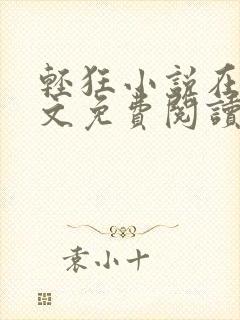 輕狂小說在
文免費閱讀
袁小十